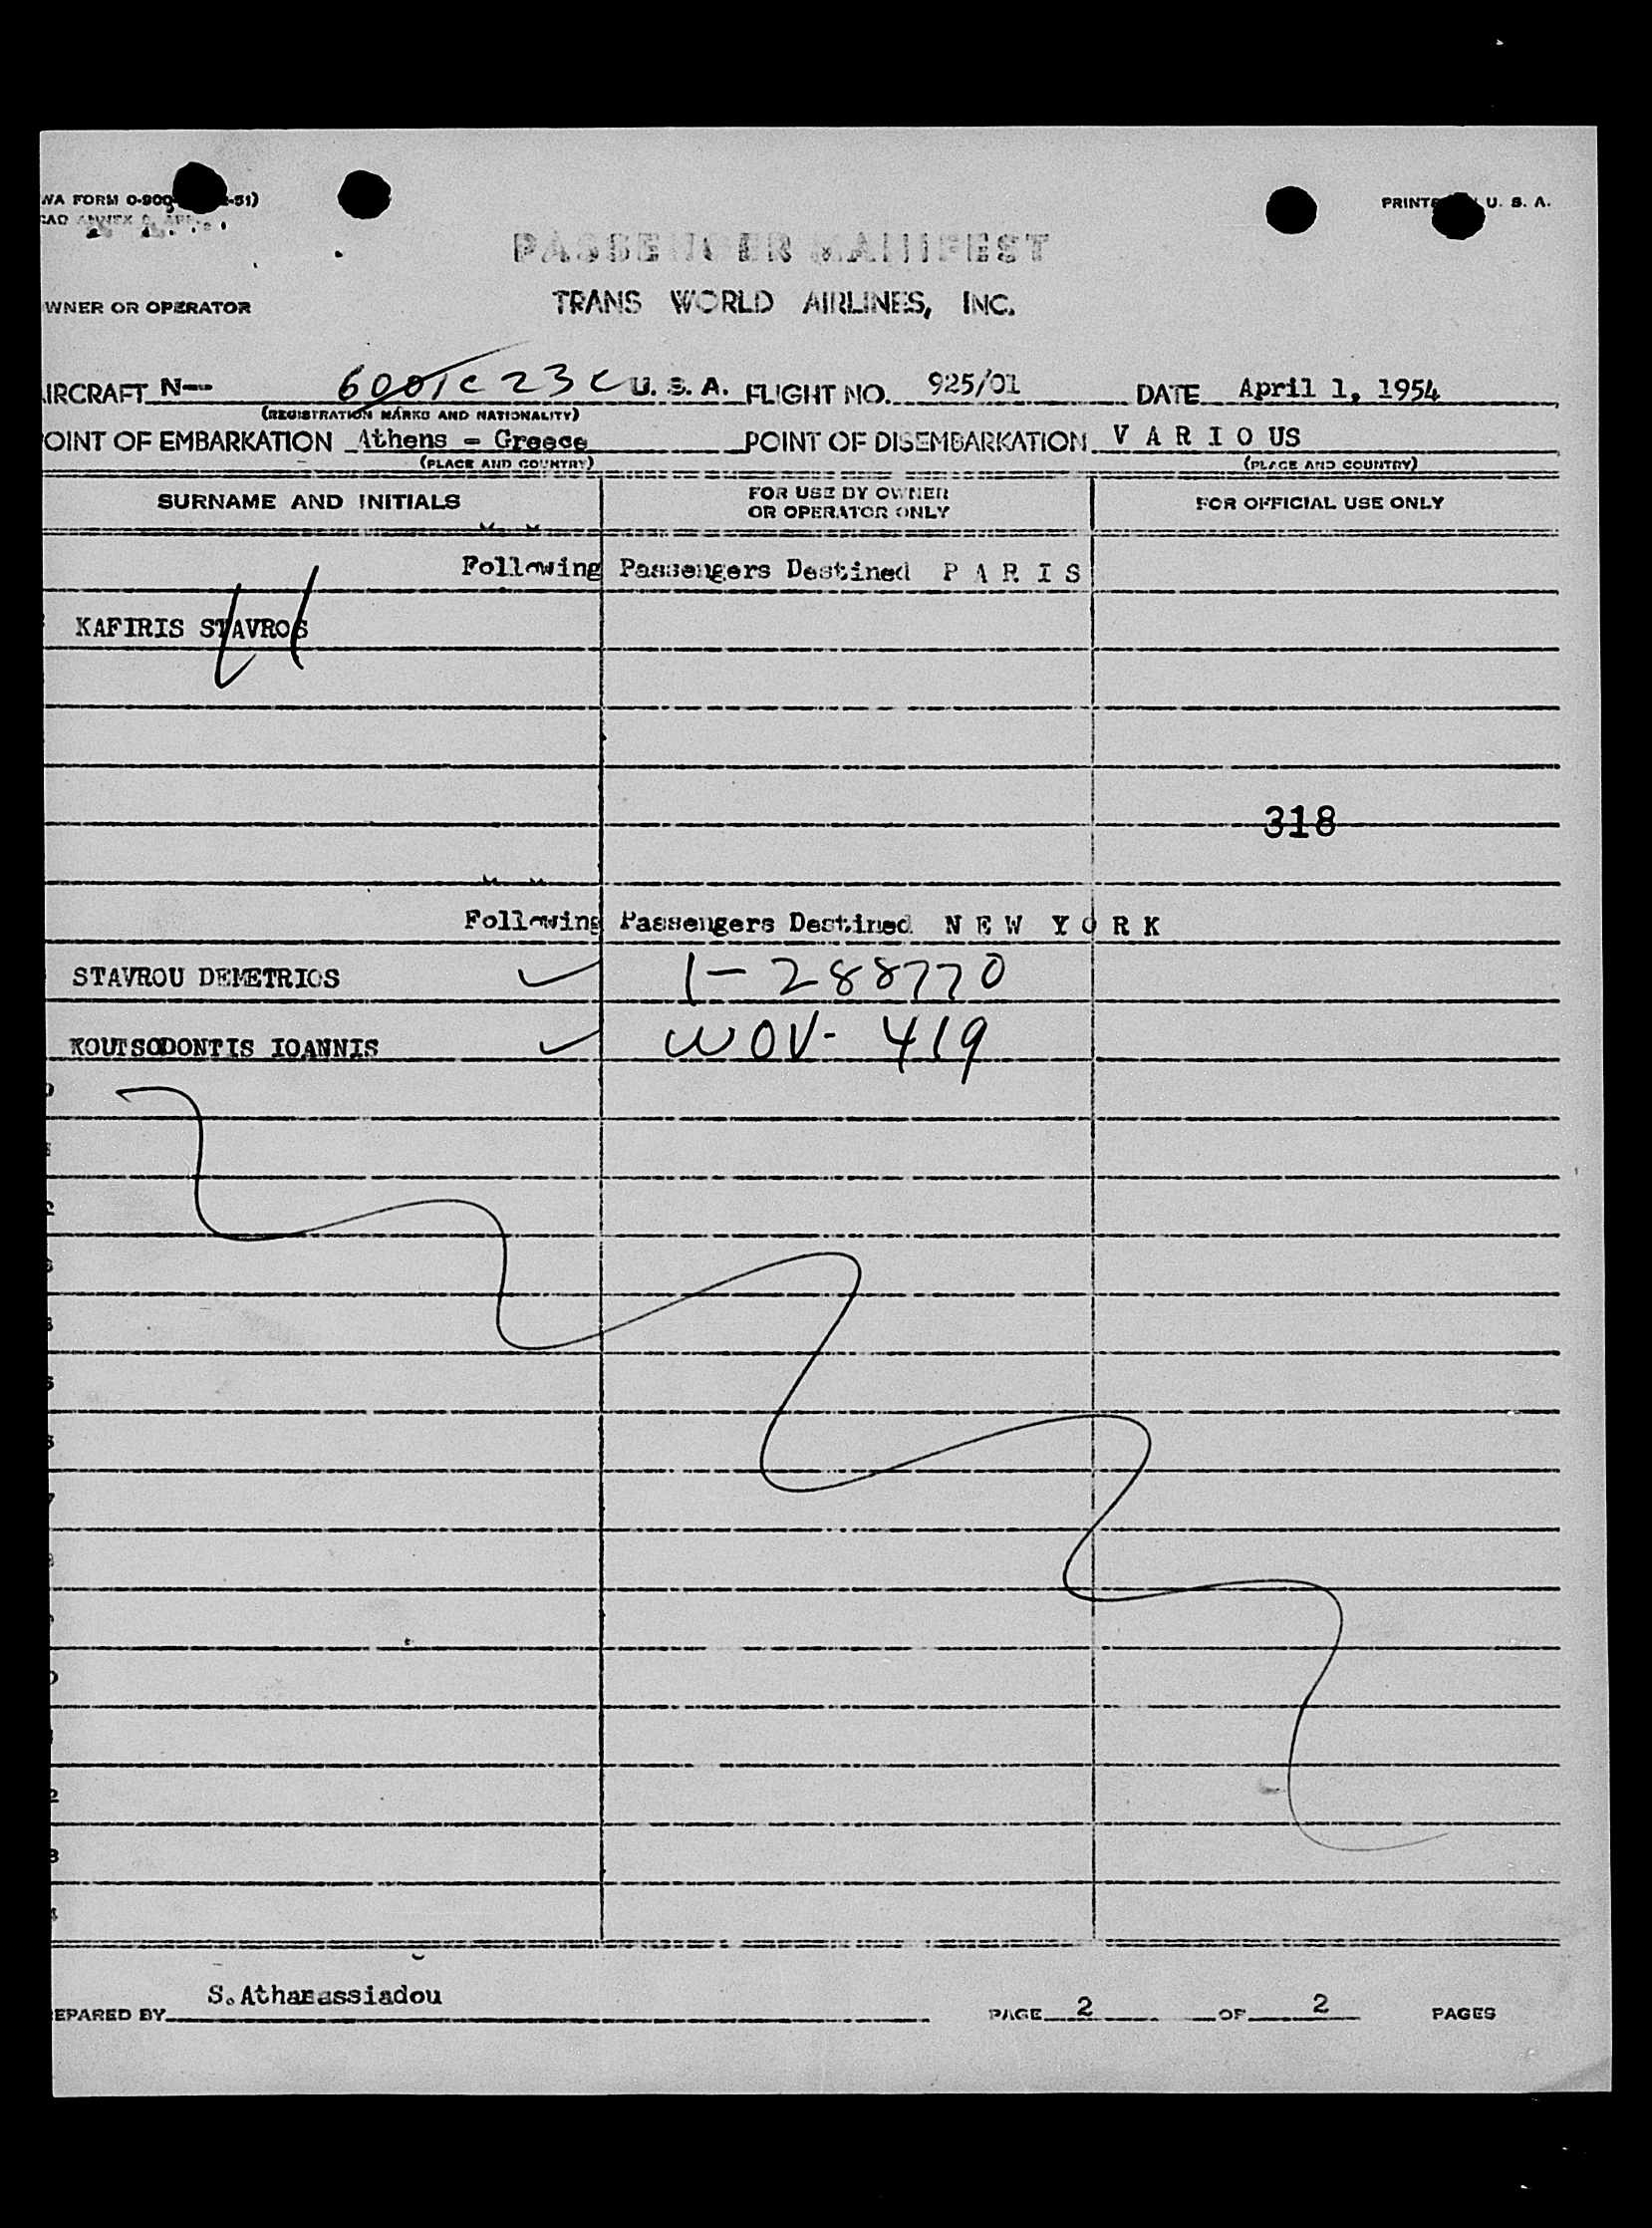 WA FORM 0-900 -51)
PRINT U. S. A.
PASSENGER MANIFEST
WNER OR OPERATOR TRANS WORLD AIRLINES, INC.
IRCRAFT N-- 6001C 23C U. S. A. FLIGHT NO. 925/01 DATE April 1, 1954
(REGISTRATION MARKS AND NATIONALITY)
OINT OF EMBARKATION Athens - Greece POINT OF DISEMBARKATION V A R I O US
(PLACE AND COUNTRY) (PLACE AND COUNTRY)
SURNAME AND INITIALS FOR USE BY OWNER OR OPERATOR ONLY FOR OFFICIAL USE ONLY
Following Passengers Destined P A R I S
KAFIRIS STAVROS
318
Following Passengers Destined N E W Y O R K
STAVROU DEMETRIOS 1-288770
KOUTSODONTIS IOANNIS WOV- 419
S.Athanassiadou
EPARED BY PAGE 2 OF 2 PAGES